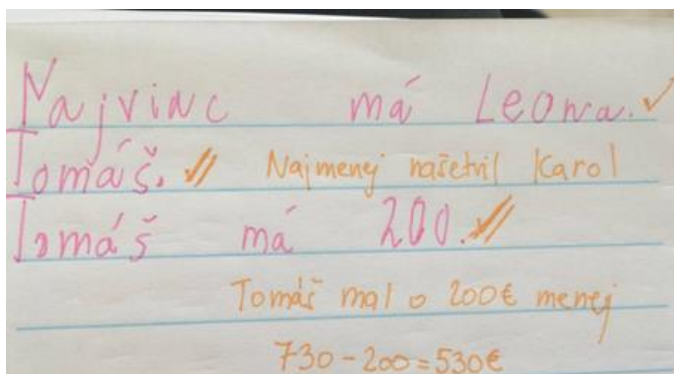 Najvinc má Leona.
Tomáš. Najmenej našetril Karol
Tomáš má 200.
Tomáš mal o 200€ menej
730-200=530€